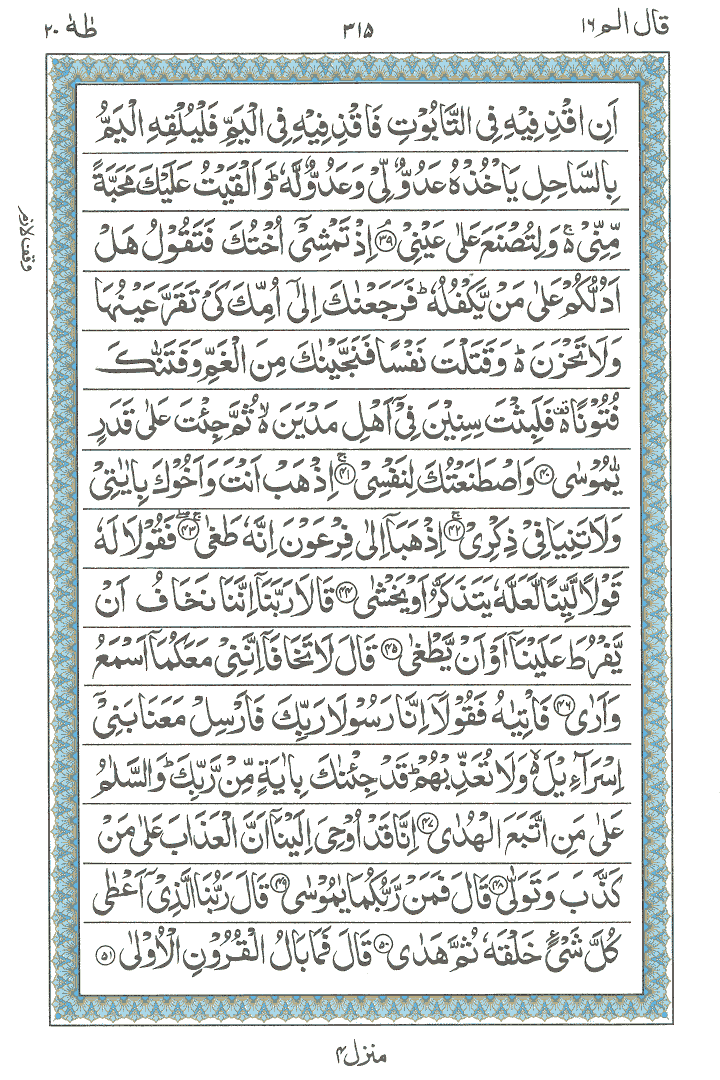 قال الم ١٦
٣١٥
طٰهٰ ٢٠
اَنِ اقْذِفِيْهِ فِى التَّابُوْتِ فَاقْذِفِيْهِ فِى الْيَمِّ فَلْيُلْقِهِ الْيَمُّ
بِالسَّاحِلِ يَاْخُذْهُ عَدُوٌّ لِّىْ وَعَدُوٌّ لَّهٗ ؕ وَاَلْقَيْتُ عَلَيْكَ مَحَبَّةً
مِّنِّىْ ۚ۬ وَلِتُصْنَعَ عَلٰى عَيْنِىْ ۘ‏﴿۳۹﴾ اِذْ تَمْشِىْۤ اُخْتُكَ فَتَقُوْلُ هَلْ
اَدُلُّكُمْ عَلٰى مَنْ يَّكْفُلُهٗ ؕ فَرَجَعْنٰكَ اِلٰٓى اُمِّكَ كَىْ تَقَرَّ عَيْنُهَا
وَلَا تَحْزَنَ ۬ؕ وَقَتَلْتَ نَفْسًا فَنَجَّيْنٰكَ مِنَ الْغَمِّ وَفَتَنّٰكَ
فُتُوْنًا ۬۫ فَلَبِثْتَ سِنِيْنَ فِىْۤ اَهْلِ مَدْيَنَ ۬ۙ ثُمَّ جِئْتَ عَلٰى قَدَرٍ
يّٰمُوْسٰى ﴿۴۰﴾ وَاصْطَنَعْتُكَ لِنَفْسِىْ ۚ‏﴿۴۱﴾ اِذْهَبْ اَنْتَ وَاَخُوْكَ بِاٰيٰتِىْ
وَلَا تَنِيَا فِىْ ذِكْرِىْ ۚ‏﴿۴۲﴾ اِذْهَبَاۤ اِلٰى فِرْعَوْنَ اِنَّهٗ طَغٰى ۖۚ‏﴿۴۳﴾ فَقُوْلَا لَهٗ
قَوْلًا لَّيِّنًا لَّعَلَّهٗ يَتَذَكَّرُ اَوْ يَخْشٰى ﴿۴۴﴾ قَالَا رَبَّنَاۤ اِنَّنَا نَخَافُ اَنْ
يَّفْرُطَ عَلَيْنَاۤ اَوْ اَنْ يَّطْغٰى ﴿۴۵﴾ قَالَ لَا تَخَافَاۤ اِنَّنِىْ مَعَكُمَاۤ اَسْمَعُ
وَاَرٰى ﴿۴۶﴾ فَاْتِيٰهُ فَقُوْلَاۤ اِنَّا رَسُوْلَا رَبِّكَ فَاَرْسِلْ مَعَنَا بَنِىْۤ
اِسْرَآءِيْلَ ۬ۙ وَلَا تُعَذِّبْهُمْ ؕ قَدْ جِئْنٰكَ بِاٰيَةٍ مِّنْ رَّبِّكَ ؕ وَالسَّلٰمُ
عَلٰى مَنِ اتَّبَعَ الْهُدٰى ﴿۴۷﴾ اِنَّا قَدْ اُوْحِىَ اِلَيْنَاۤ اَنَّ الْعَذَابَ عَلٰى مَنْ
كَذَّبَ وَتَوَلّٰى ﴿۴۸﴾ قَالَ فَمَنْ رَّبُّكُمَا يٰمُوْسٰى ﴿۴۹﴾ قَالَ رَبُّنَا الَّذِىْۤ اَعْطٰى
كُلَّ شَىْءٍ خَلْقَهٗ ثُمَّ هَدٰى ﴿۵۰﴾ قَالَ فَمَا بَالُ الْقُرُوْنِ الْاُوْلٰى ﴿۵۱﴾
وقف لازم
منزل ۴